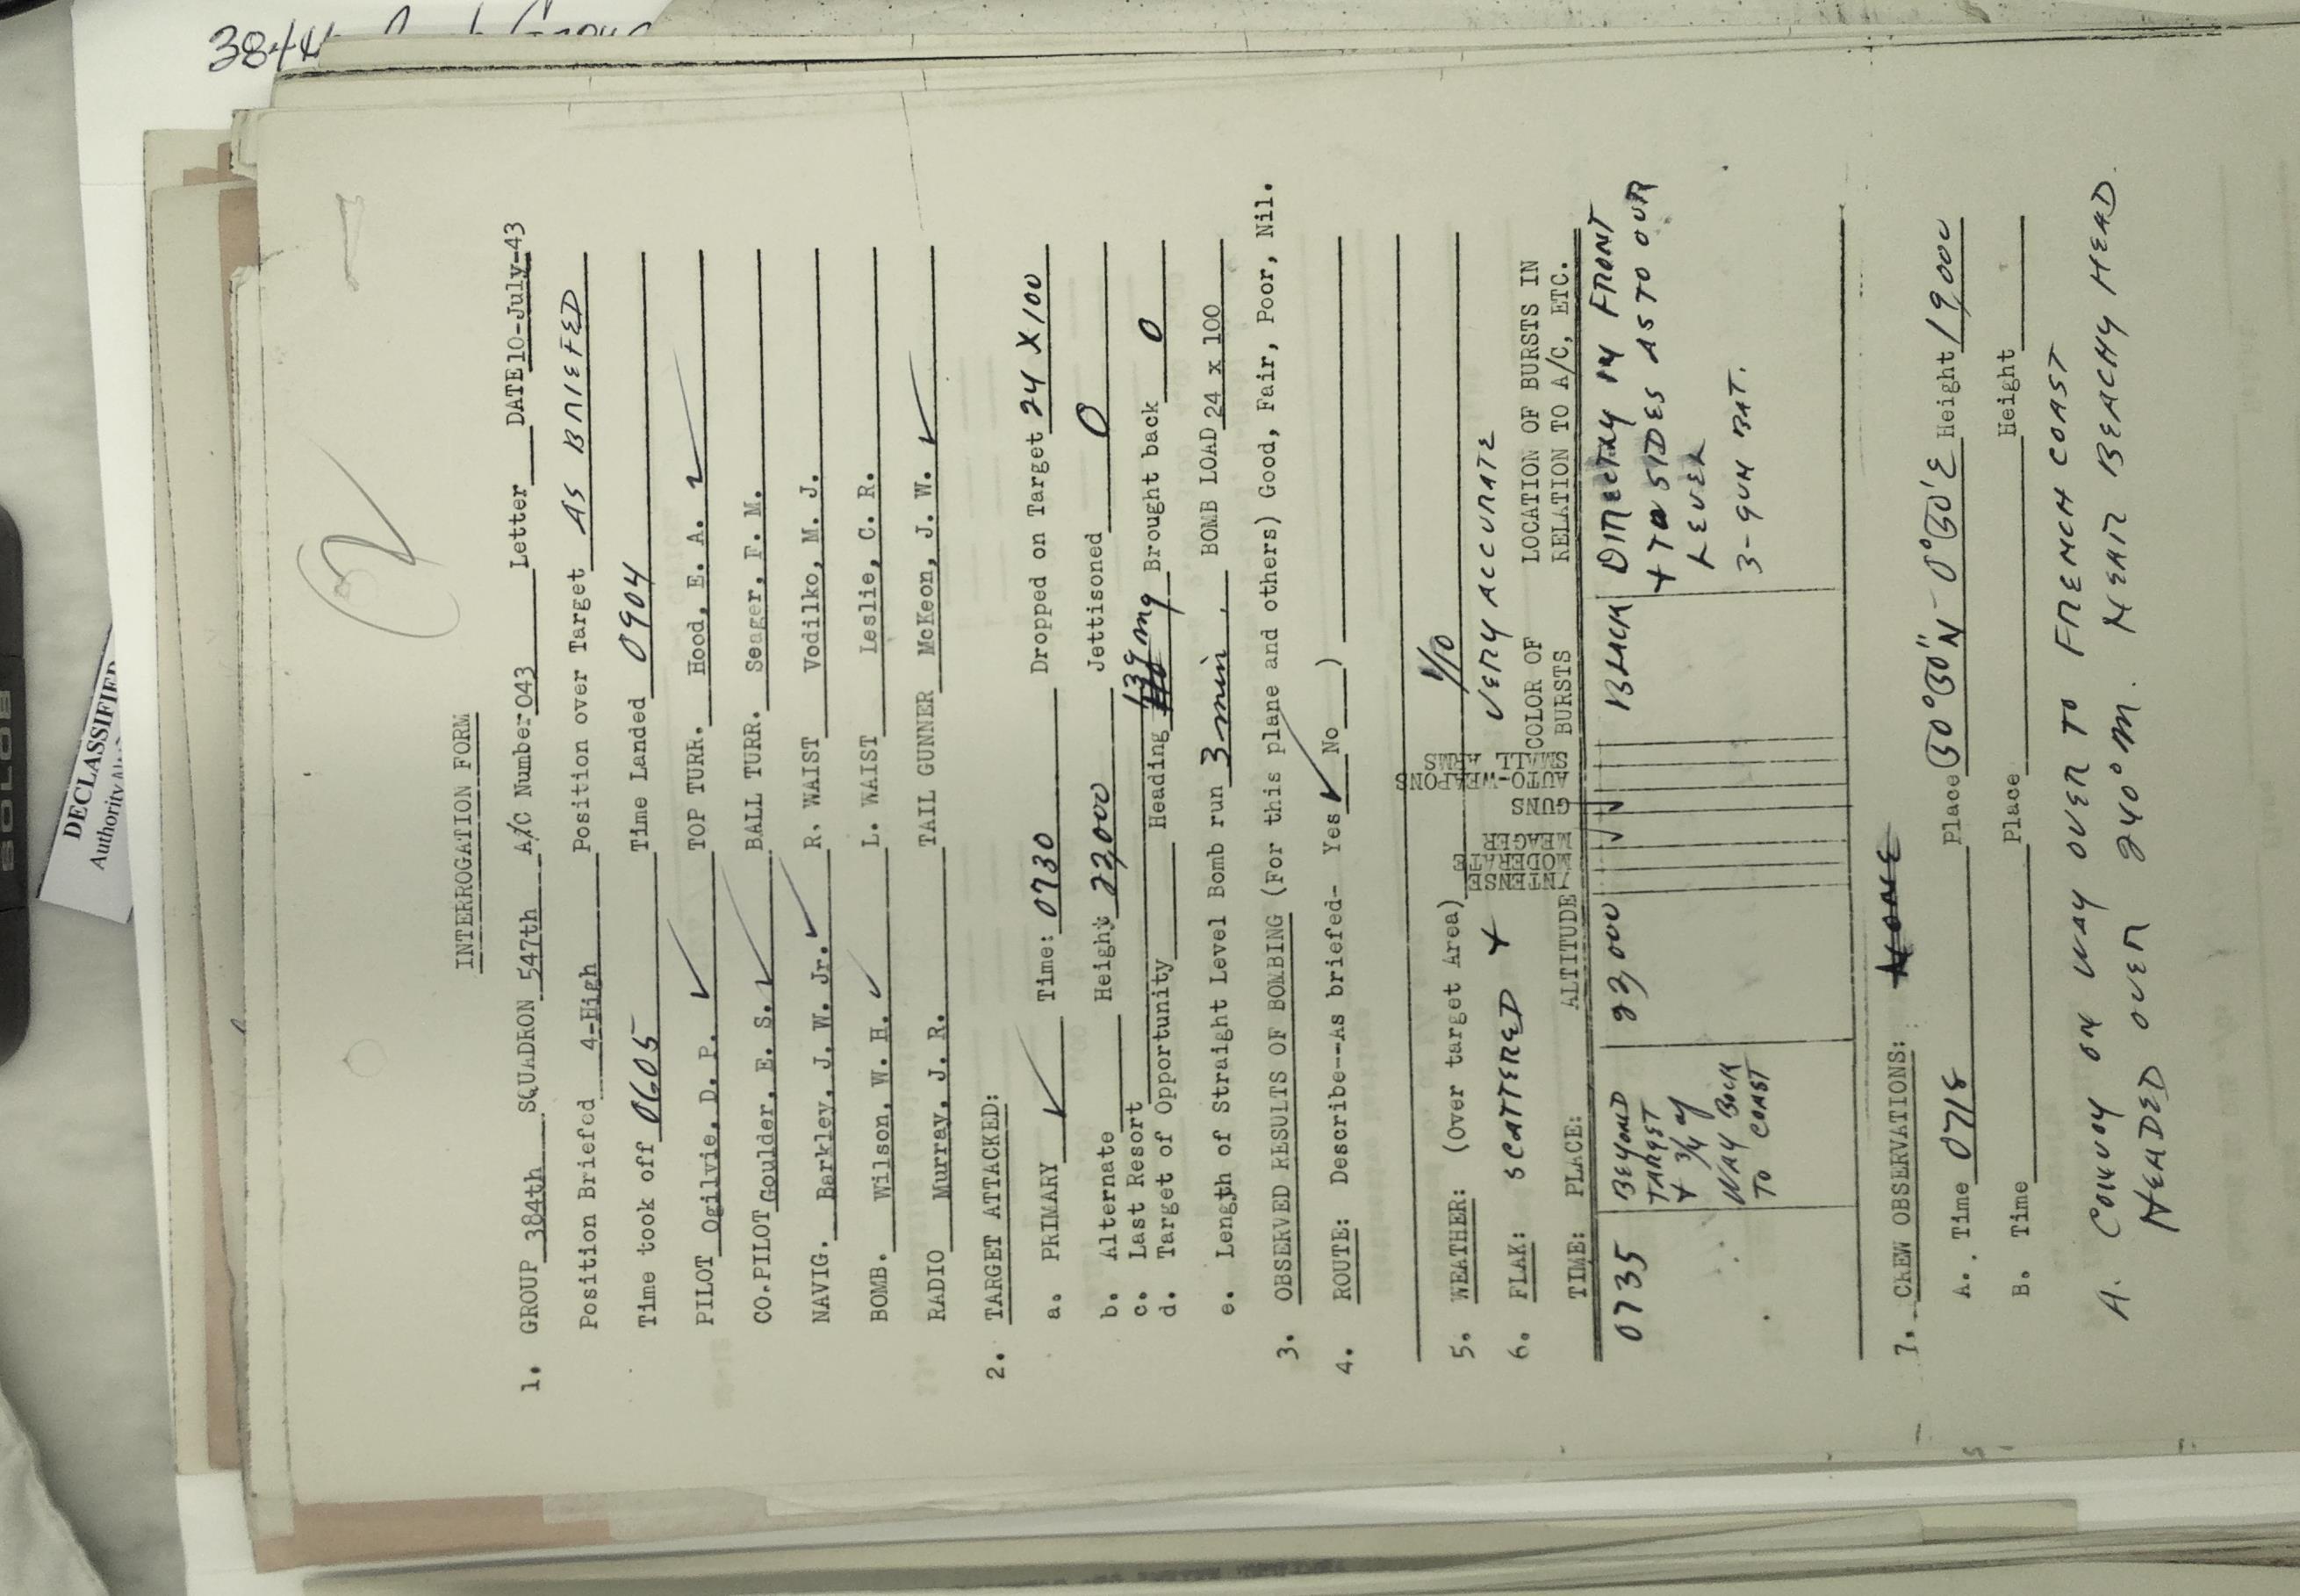 384th
SOLO
DECLASSIFIED
Authority
2
INTERROGATION FORM
1. GROUP 384th SQUADRON 547th A/C Number 043 Letter DATE 10-July-43
Position Briefed 4-High Position over Target AS BRIEFED
Time took off 0605 Time Landed 0904
PILOT Ogilvie, D. P. TOP TURR. Hood, E. A.
CO.PILOT Goulder, E. S. BALL TURR. Seager, F. M.
NAVIG. Barkley, J. W. Jr. R. WAIST Vodilko, M. J.
BOMB. Wilson, W. H. L. WAIST Leslie, C. R.
RADIO Murray, J. R. TAIL GUNNER McKeon, J. W.
2. TARGET ATTACKED:
a. PRIMARY ✓ Time: 0730 Dropped on Target 24 X 100
b. Alternate Height 22,000 Jettisoned 0
c. Last Resort
d. Target of Opportunity Heading 139 mg Brought back 0
e. Length of Straight Level Bomb run 3 min. BOMB LOAD 24 x 100
3. OBSERVED RESULTS OF BOMBING (For this plane and others) Good, Fair, Poor, Nil.
4. ROUTE: Describe--As briefed- Yes ✓ No )
5. WEATHER: (Over target Area) 1/10
6. FLAK: SCATTERED + VERY ACCURATE
TIME: PLACE: ALTITUDE INTENSE MODERATE MEAGER GUNS AUTO-WEAPONS SMALL ARMS COLOR OF BURSTS LOCATION OF BURSTS IN RELATION TO A/C, ETC.
0735 BEYOND 23,000 ✓ ✓ BLACK DIRECTLY IN FRONT
TARGET + TO SIDES AS TO OUR
+ 3/4 OF LEVEL
WAY BACK 3-GUN BAT.
TO COAST
7. CREW OBSERVATIONS: NONE
A. Time 0718 Place 50°50"N - 0°50'E Height 19,000
B. Time Place Height
A. CONVOY ON WAY OVER TO FRENCH COAST
HEADED OVER 240° M. NEAR BEACHY HEAD.